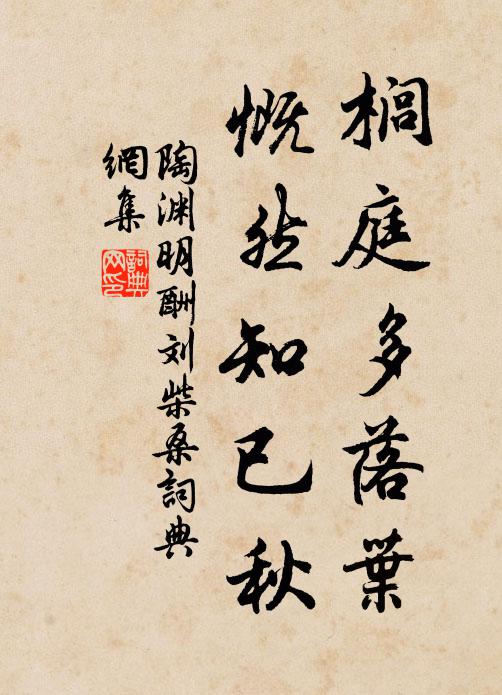 榈庭多落葉
慨然知已秋
陶渊明酬刘柴桑詞典
網集
詞典
网印